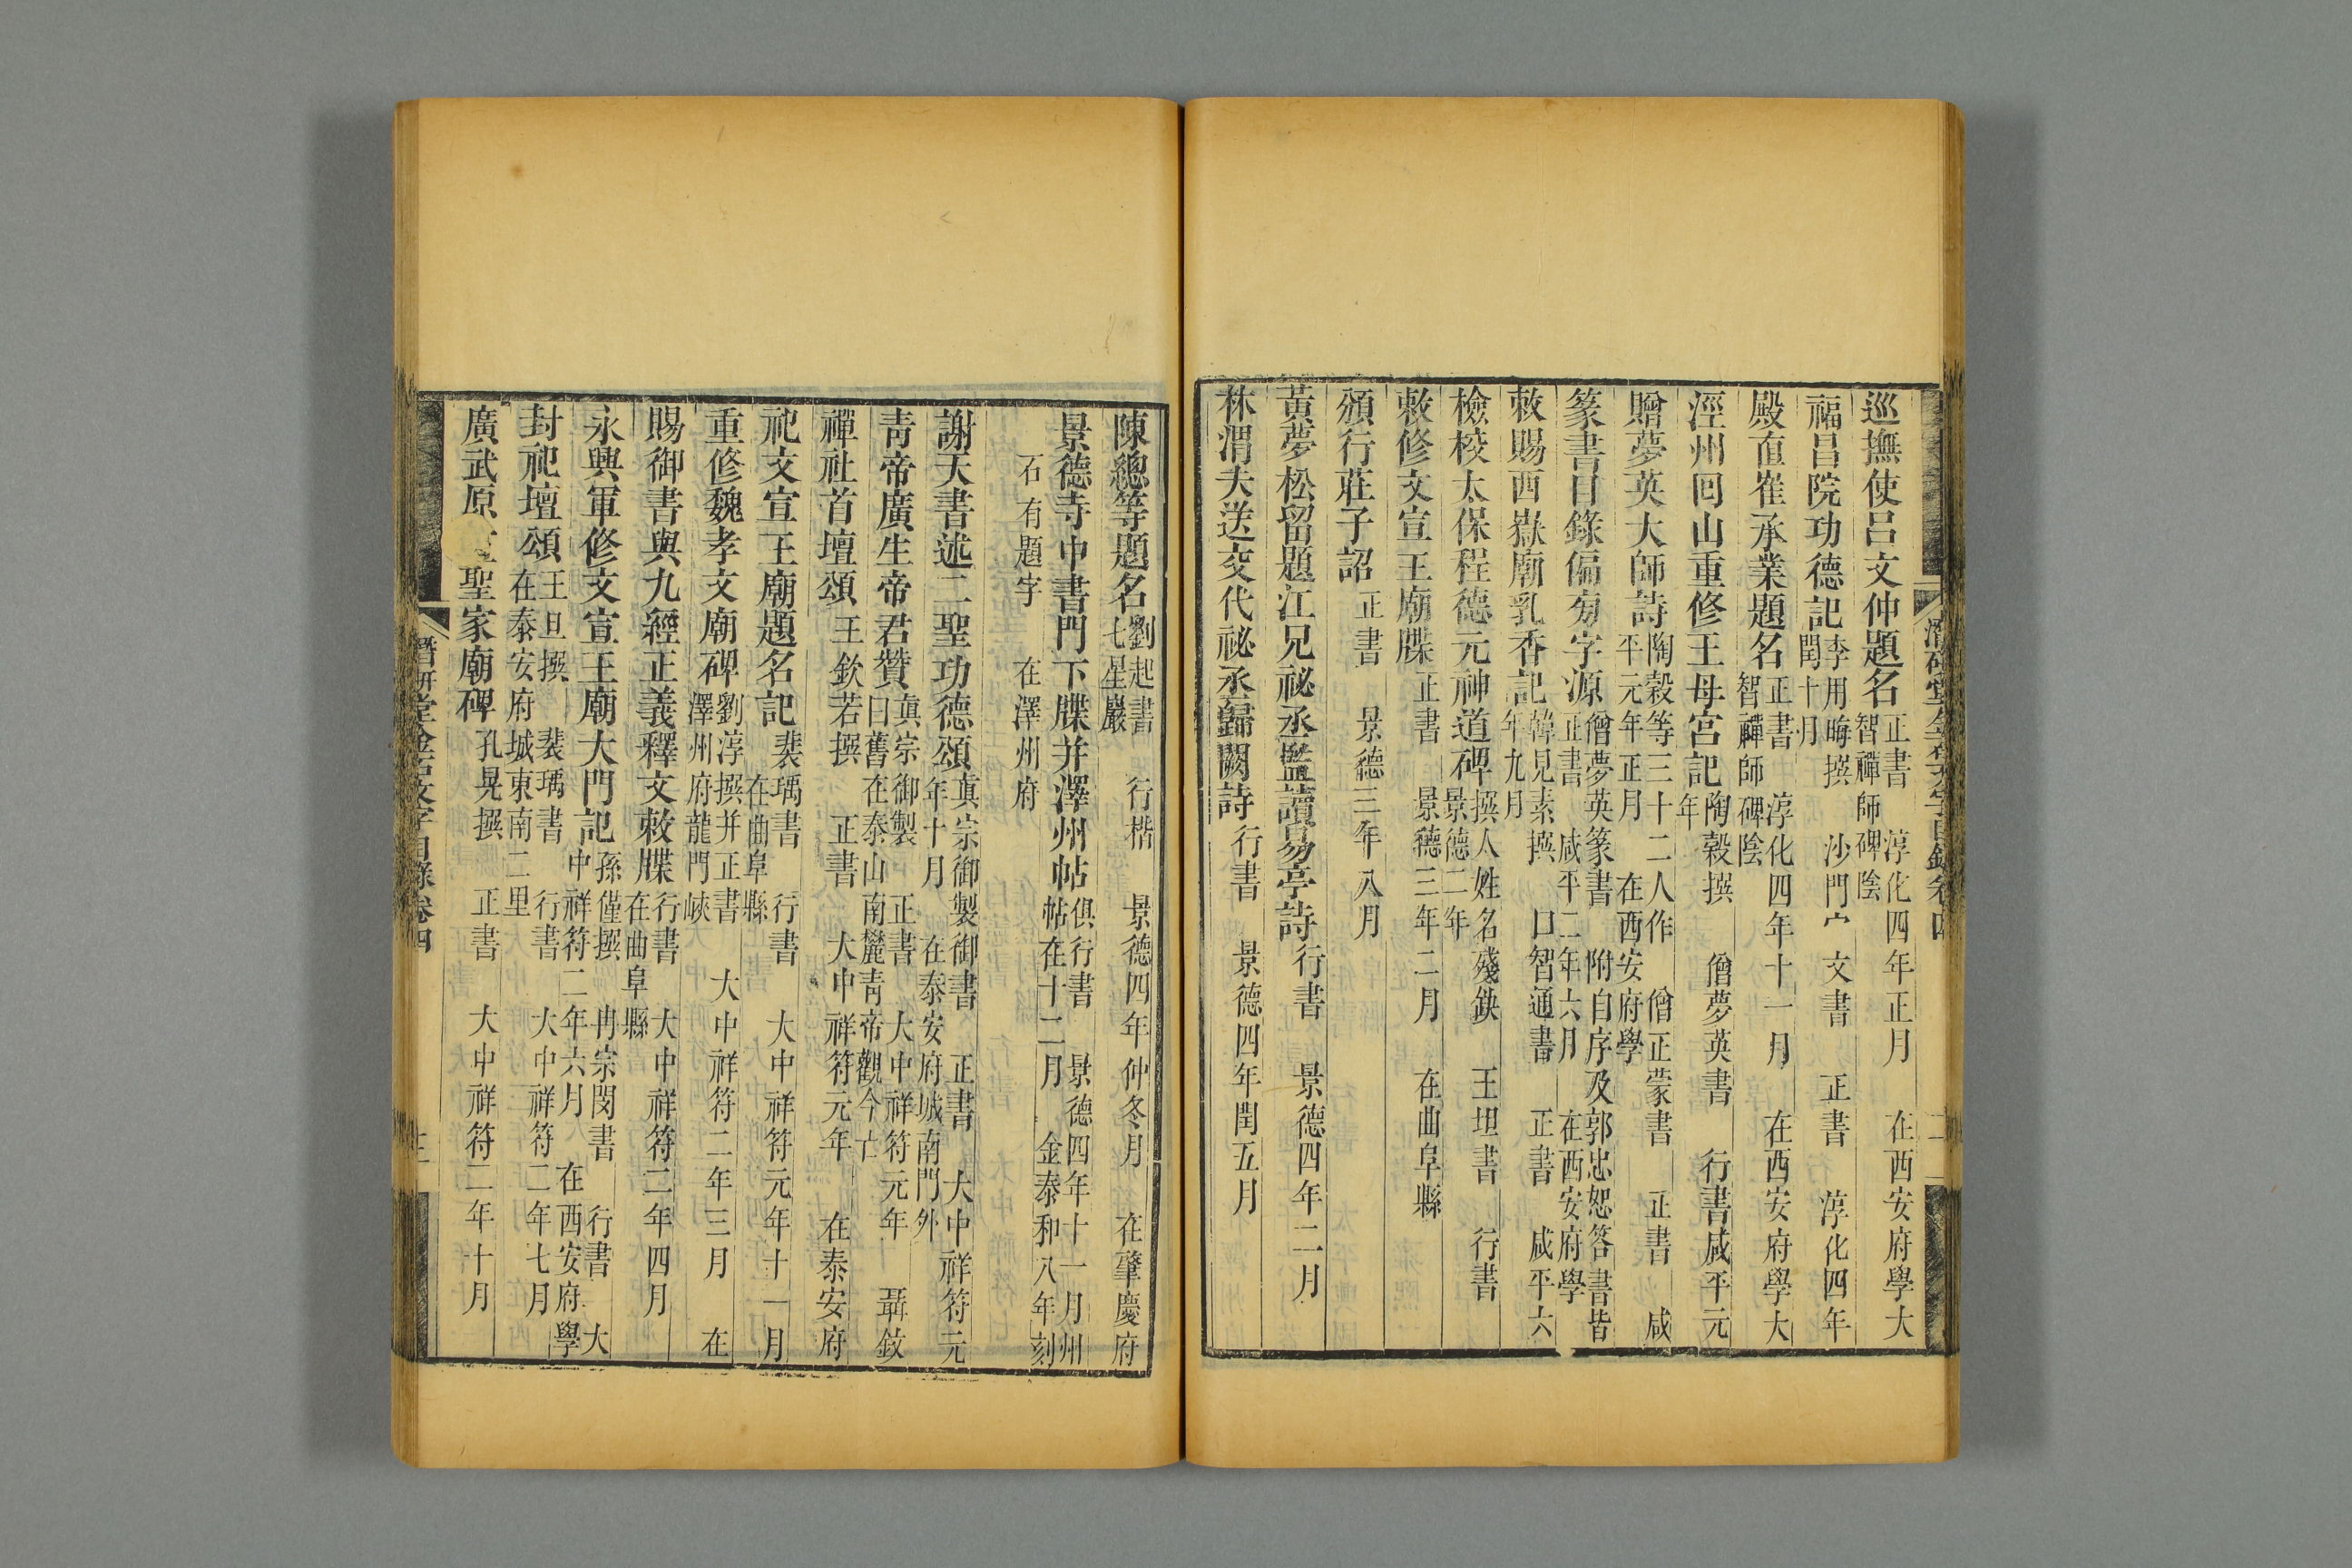 巡撫使呂文仲題名 正書 淳化四年正月 在西安府學大智禪師碑陰
福昌院功德記 李用晦撰 沙門 文書 正書 淳化四年閏十月
殿直崔承業題名 正書 淳化四年十一月 在西安府學大智禪師碑陰
涇州回山重修王母宮記 陶穀撰 僧夢英書 行書 咸平元年
贈夢英大師詩 陶穀等三十二人作 僧正蒙書 正書 咸平元年正月 在西安府學
篆書目錄偏旁字源 僧夢英篆書 附自序及郭忠恕答書皆正書 咸平二年六月 在西安府學
敕賜西嶽廟乳香記 韓見素撰 口智通書 正書 咸平六年九月
檢校太保程德元神道碑 撰人姓名殘缺 王坦書 行書 景德二年
敕修文宣王廟牒 正書 景德三年二月 在曲阜縣
頒行莊子詔 正書 景德三年八月
黃夢松留題江兄祕丞鹽讀易亭詩 行書 景德四年二月
林渭夫送交代祕丞歸闕詩 行書 景德四年閏五月
陳總等題名 劉起書 行楷 景德四年仲冬月 在肇慶府七星巖
景德寺中書門下牒并澤州帖 俱行書 景德四年十一月州帖在十二月 金泰和八年刻
石有題字 在澤州府
謝天書述二聖功德頌 真宗御製御書 正書 大中祥符元年十月 在泰安府城南門外
青帝廣生帝君贊 真宗御製 正書 大中祥符元年 聶鈫曰舊在泰山南麓青帝觀今亡
禪社首壇頌 王欽若撰 正書 大中祥符元年 在泰安府
祀文宣王廟題名記 裴瑀書 行書 大中祥符元年十一月 在曲阜縣
重修魏孝文廟碑 劉淳撰并正書 大中祥符二年三月 在澤州府龍門峽
賜御書與九經正義釋文敕牒 行書 大中祥符二年四月 在曲阜縣
永興軍修文宣王廟大門記 孫僅撰 冉宗閔書 行書 大中祥符二年六月 在西安府學
封祀壇頌 王旦撰 裴瑀書 行書 大中祥符二年七月 在泰安府城東南二里
廣武原 聖家廟碑 孔晃撰 正書 大中祥符二年十月
潛研堂金石文字目錄卷四